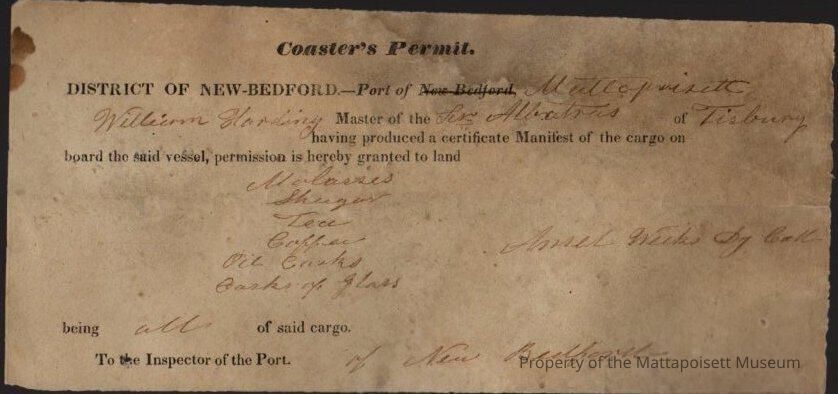 Coaster's Permit.
DISTRICT OF NEW-BEDFORD.—Port of New-Bedford, Mattapoisett
William Harding Master of the Scr Albatras of Tisbury
having produced a certificate Manifest of the cargo on
board the said vessel, permission is hereby granted to land
Molasses
Shugar
Tea
Coffee
Oil Casks
Casks of Glass
Ansel Weeks Dy Coll
being all of said cargo.
To the Inspector of the Port. of New Bedford
Property of the Mattapoisett Museum